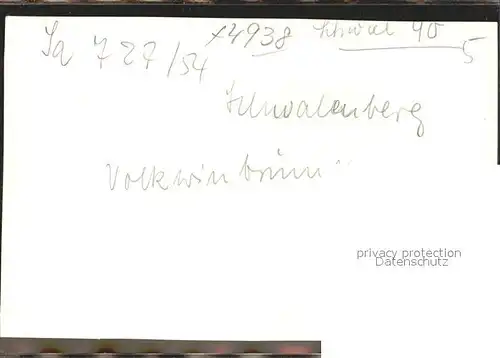 Sa 727/54 x4938 Schwal 40
5
Schwalenberg
Volkwinbrunn
privacy protection
Datenschutz